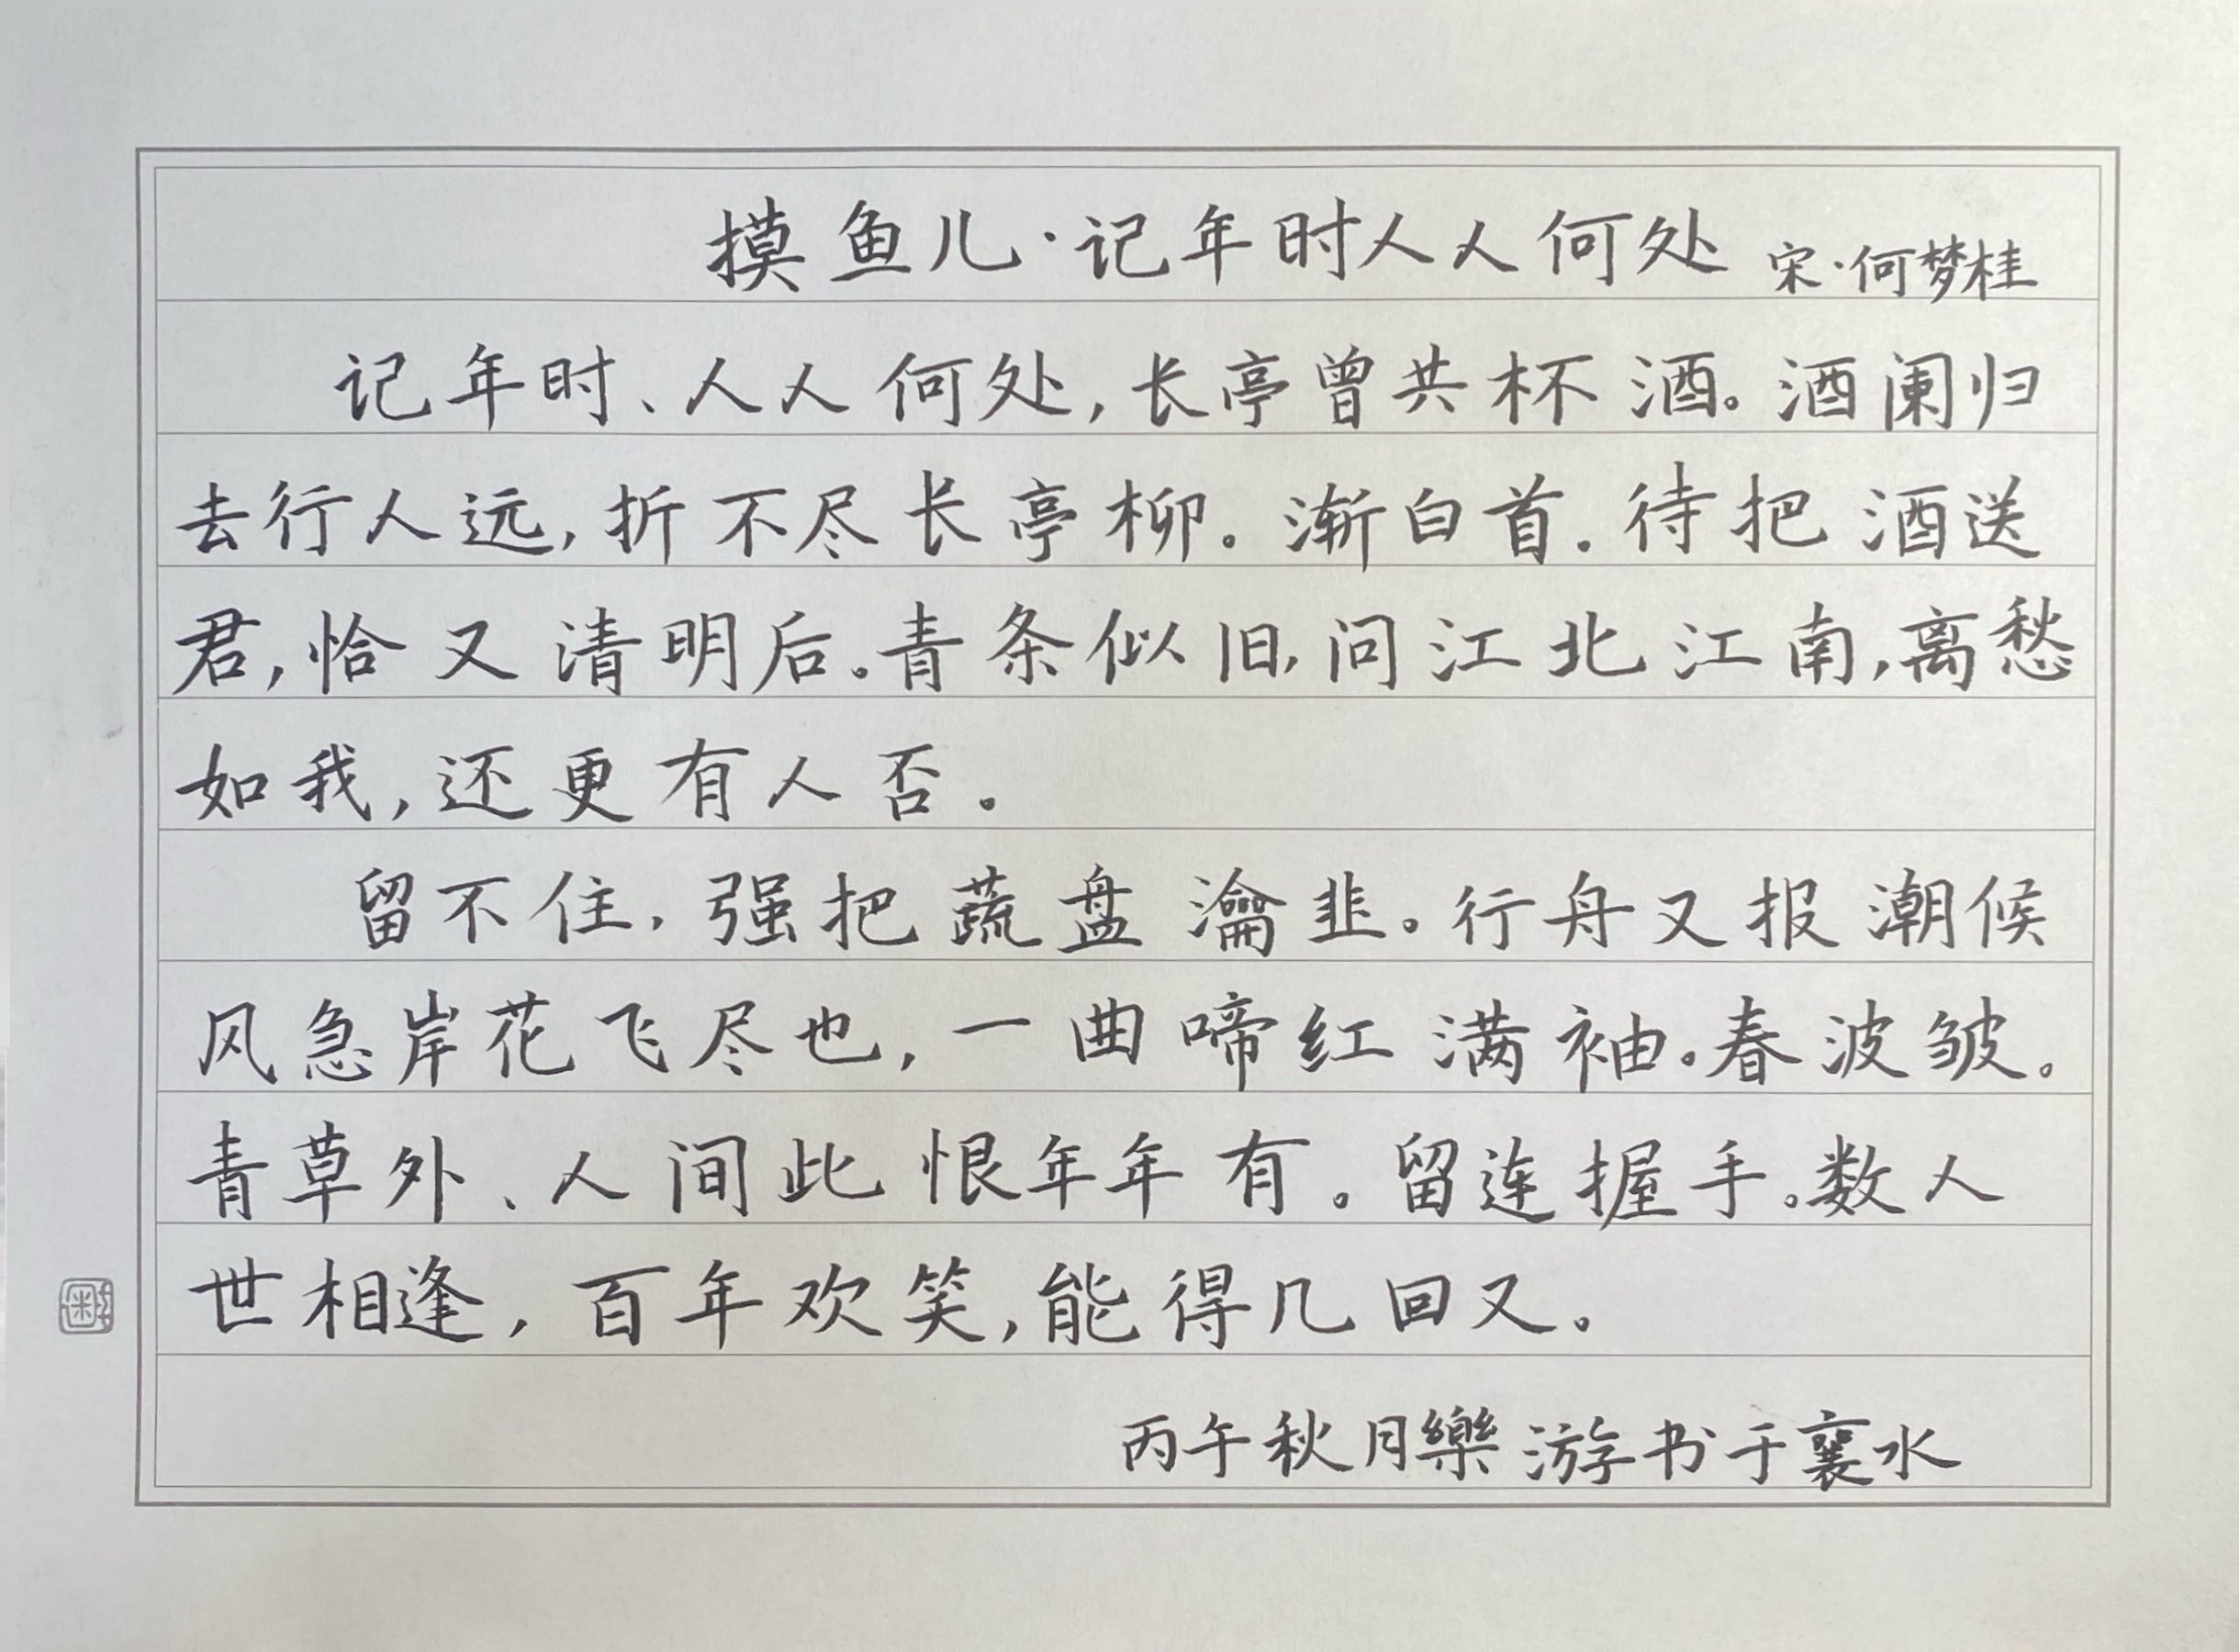 摸鱼儿·记年时人人何处 宋·何梦桂
记年时、人人何处,长亭曾共杯酒。酒阑归
去行人远,折不尽长亭柳。渐白首.待把酒送
君,恰又清明后。青条似旧,问江北江南,离愁
如我,还更有人否.
留不住,强把蔬盘瀹韭。行舟又报潮候
风急岸花飞尽也,一曲啼红满袖.春波皱。
青草外、人间此恨年年有。留连握手。数人
世相逢,百年欢笑,能得几回又.
丙午秋月樂游书于襄水